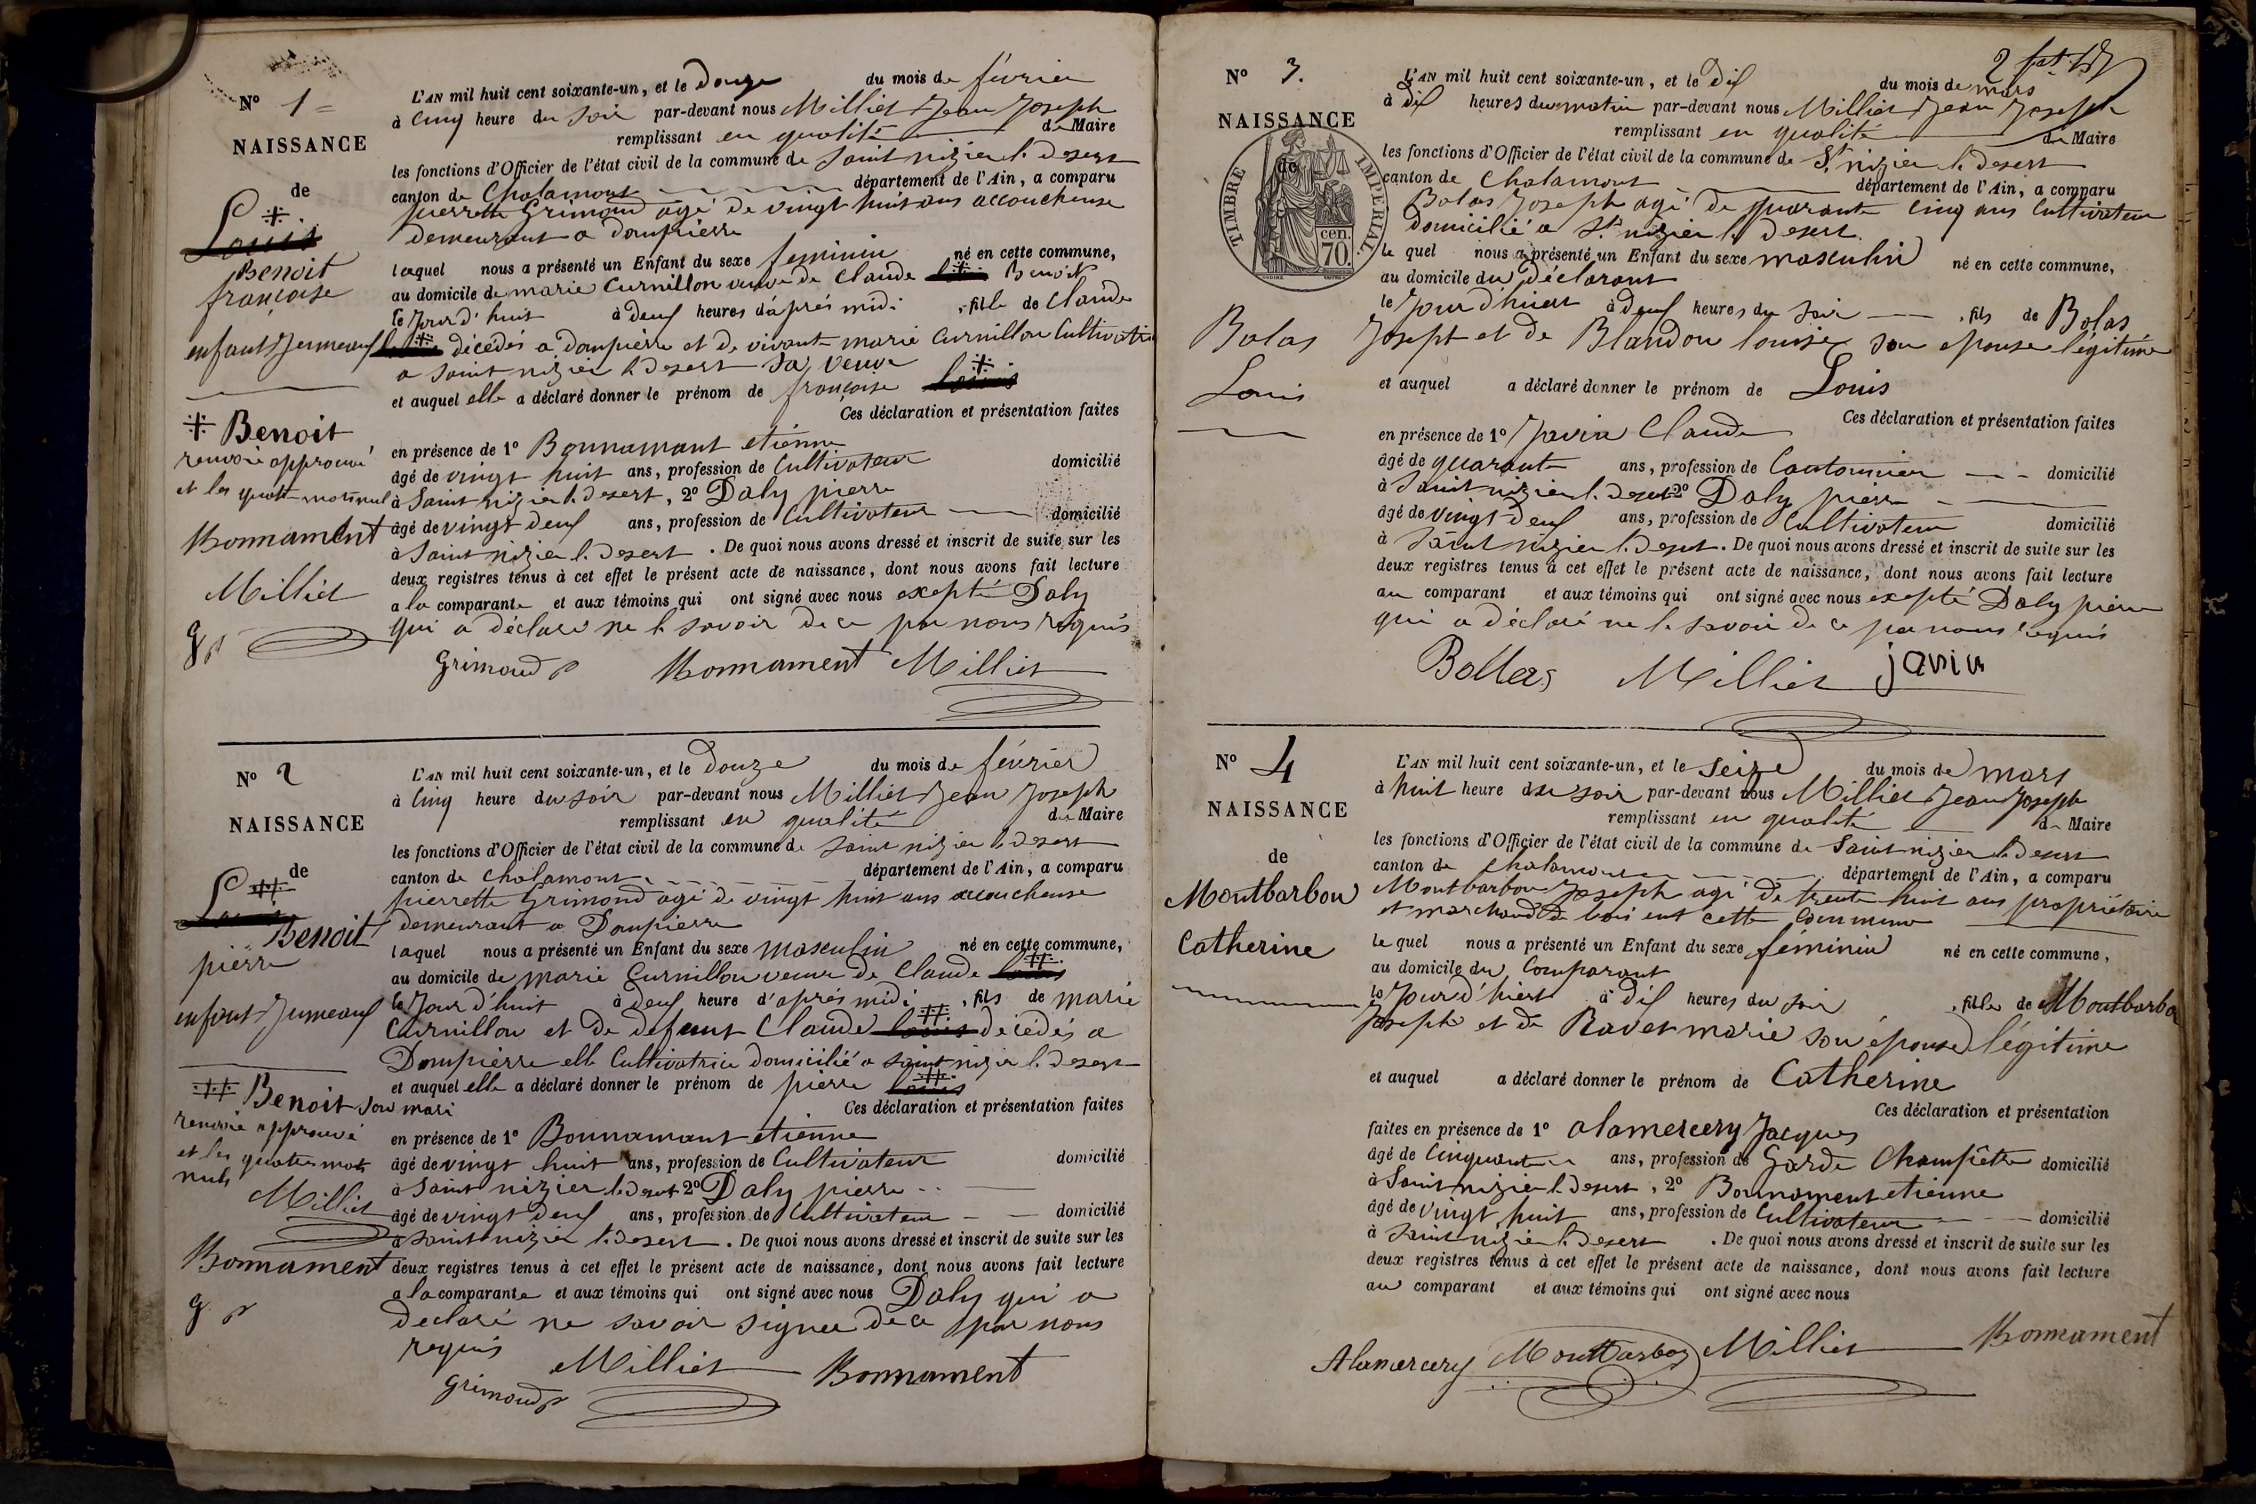 N° 1
NAISSANCE
de
Louis
Benoit
françoise
enfant Jumeaux
Benoit
renvoi approuvé
et les quatre mots nul
Bonnament
Milliet
g p
L'AN mil huit cent soixante-un, et le Douze du mois de février
à Cinq heure du Soir par-devant nous Milliet Jean Joseph
remplissant en qualité de Maire
les fonctions d'Officier de l'état civil de la commune de Saint nizier le desert
canton de Chalamont département de l'Ain, a comparu
pierrette Grimond agé de vingt huit ans accoucheuse
demeurant a dompierre
laquel nous a présenté un Enfant du sexe feminin né en cette commune,
au domicile de marie Curnillon veuve de Claude Benoit
le Jour d'huit à deux heures d'après midi , fille de Claude
décédés a dompierre et de vivante marie Curnillon Cultivatrice
a Saint nizier le desert Sa veuve
et auquel elle a déclaré donner le prénom de françoise
Ces déclaration et présentation faites
en présence de 1° Bonnamant etienne
âgé de vingt huit ans, profession de Cultivateur domicilié
à Saint nizier le desert, 2° Daly pierre
âgé de vingt deux ans, profession de Cultivateur domicilié
à Saint nizier le desert. De quoi nous avons dressé et inscrit de suite sur les
deux registres tenus à cet effet le présent acte de naissance, dont nous avons fait lecture
a la comparante et aux témoins qui ont signé avec nous excepté Daly
qui a déclaré ne le savoir de ce par nous requis
Grimond p Bonnament Milliet
N° 2
NAISSANCE
de
Louis
Benoit
pierre
enfant Jumeaux
Benoit son mari
renvoi approuvé
et les quatre mots
nuls
Milliet
Bonnament
g p
L'AN mil huit cent soixante-un, et le Douze du mois de février
à Cinq heure du Soir par-devant nous Milliet Jean Joseph
remplissant en qualité de Maire
les fonctions d'Officier de l'état civil de la commune de Saint nizier le desert
canton de Chalamont département de l'Ain, a comparu
pierrette Grimond agé de vingt huit ans accoucheuse
demeurant a Dompierre
laquel nous a présenté un Enfant du sexe masculin né en cette commune,
au domicile de marie Curnillon veuve de Claude Louis
le Jour d'huit à deux heure d'après midi , fils de marie
Curnillon et de defunt Claude Louis décédés a
Dompierre elle Cultivatrice domicilié a Saint nizier le desert
et auquel elle a déclaré donner le prénom de pierre Louis
Ces déclaration et présentation faites
en présence de 1° Bonnamant etienne
âgé de vingt huit ans, profession de Cultivateur domicilié
à Saint nizier le desert 2° Daly pierre
âgé de vingt deux ans, profession de Cultivateur domicilié
à Saint nizier le desert. De quoi nous avons dressé et inscrit de suite sur les
deux registres tenus à cet effet le présent acte de naissance, dont nous avons fait lecture
a la comparante et aux témoins qui ont signé avec nous Daly qui a
declaré ne savoir signer de ce par nous
requis
Milliet Bonnament
Grimond p
N° 3.
NAISSANCE
de
TIMBRE IMPERIAL
cen.
70.
Bolas
Louis
L'AN mil huit cent soixante-un, et le dix du mois de mars
à dix heures du matin par-devant nous Milliet Jean Joseph
remplissant en qualité de Maire
les fonctions d'Officier de l'état civil de la commune de St nizier le desert
canton de Chalamont département de l'Ain, a comparu
Bolas Joseph agé de quarante Cinq ans Cultivateur
domicilié a St nizier le desert
le quel nous a présenté un Enfant du sexe masculin né en cette commune,
au domicile du Déclarant
le Jour d'hiert à deux heures du soir , fils de Bolas
Josept et de Blandon louise son epouse légitime
et auquel a déclaré donner le prénom de Louis
Ces déclaration et présentation faites
en présence de 1° Javin Claude
âgé de quarante ans, profession de Cantonnier domicilié
à Saint nizier le desert 2° Daly pierre
âgé de vingt deux ans, profession de Cultivateur domicilié
à Saint nizier le desert. De quoi nous avons dressé et inscrit de suite sur les
deux registres tenus à cet effet le présent acte de naissance, dont nous avons fait lecture
au comparant et aux témoins qui ont signé avec nous excepté Daly pierre
qui a déclaré ne le savoir de ce par nous requis
Bollas Milliet javin
N° 4
NAISSANCE
de
Montbarbon
Catherine
L'AN mil huit cent soixante-un, et le Seize du mois de mars
à huit heure du soir par-devant nous Milliet Jean Joseph
remplissant en qualité de Maire
les fonctions d'Officier de l'état civil de la commune de Saint nizier le desert
canton de Chalamont département de l'Ain, a comparu
Montbarbon Joseph agé de trente huit ans propriétaire
et marchand de bois ent cette Commune
le quel nous a présenté un Enfant du sexe féminin né en cette commune,
au domicile du Comparant
le Jour d'hiert à dix heures du soir , fille de Montbarbon
Joseph et de Ravet marie son épouse légitime
et auquel a déclaré donner le prénom de Catherine
Ces déclaration et présentation
faites en présence de 1° alamercery Jacques
âgé de Cinquante ans, profession de Garde Champêtre domicilié
à Saint nizier le desert, 2° Bonnament etienne
âgé de vingt huit ans, profession de Cultivateur domicilié
à Saint nizier le desert. De quoi nous avons dressé et inscrit de suite sur les
deux registres tenus à cet effet le présent acte de naissance, dont nous avons fait lecture
au comparant et aux témoins qui ont signé avec nous
Alamercery Montbarbon Milliet Bonnament